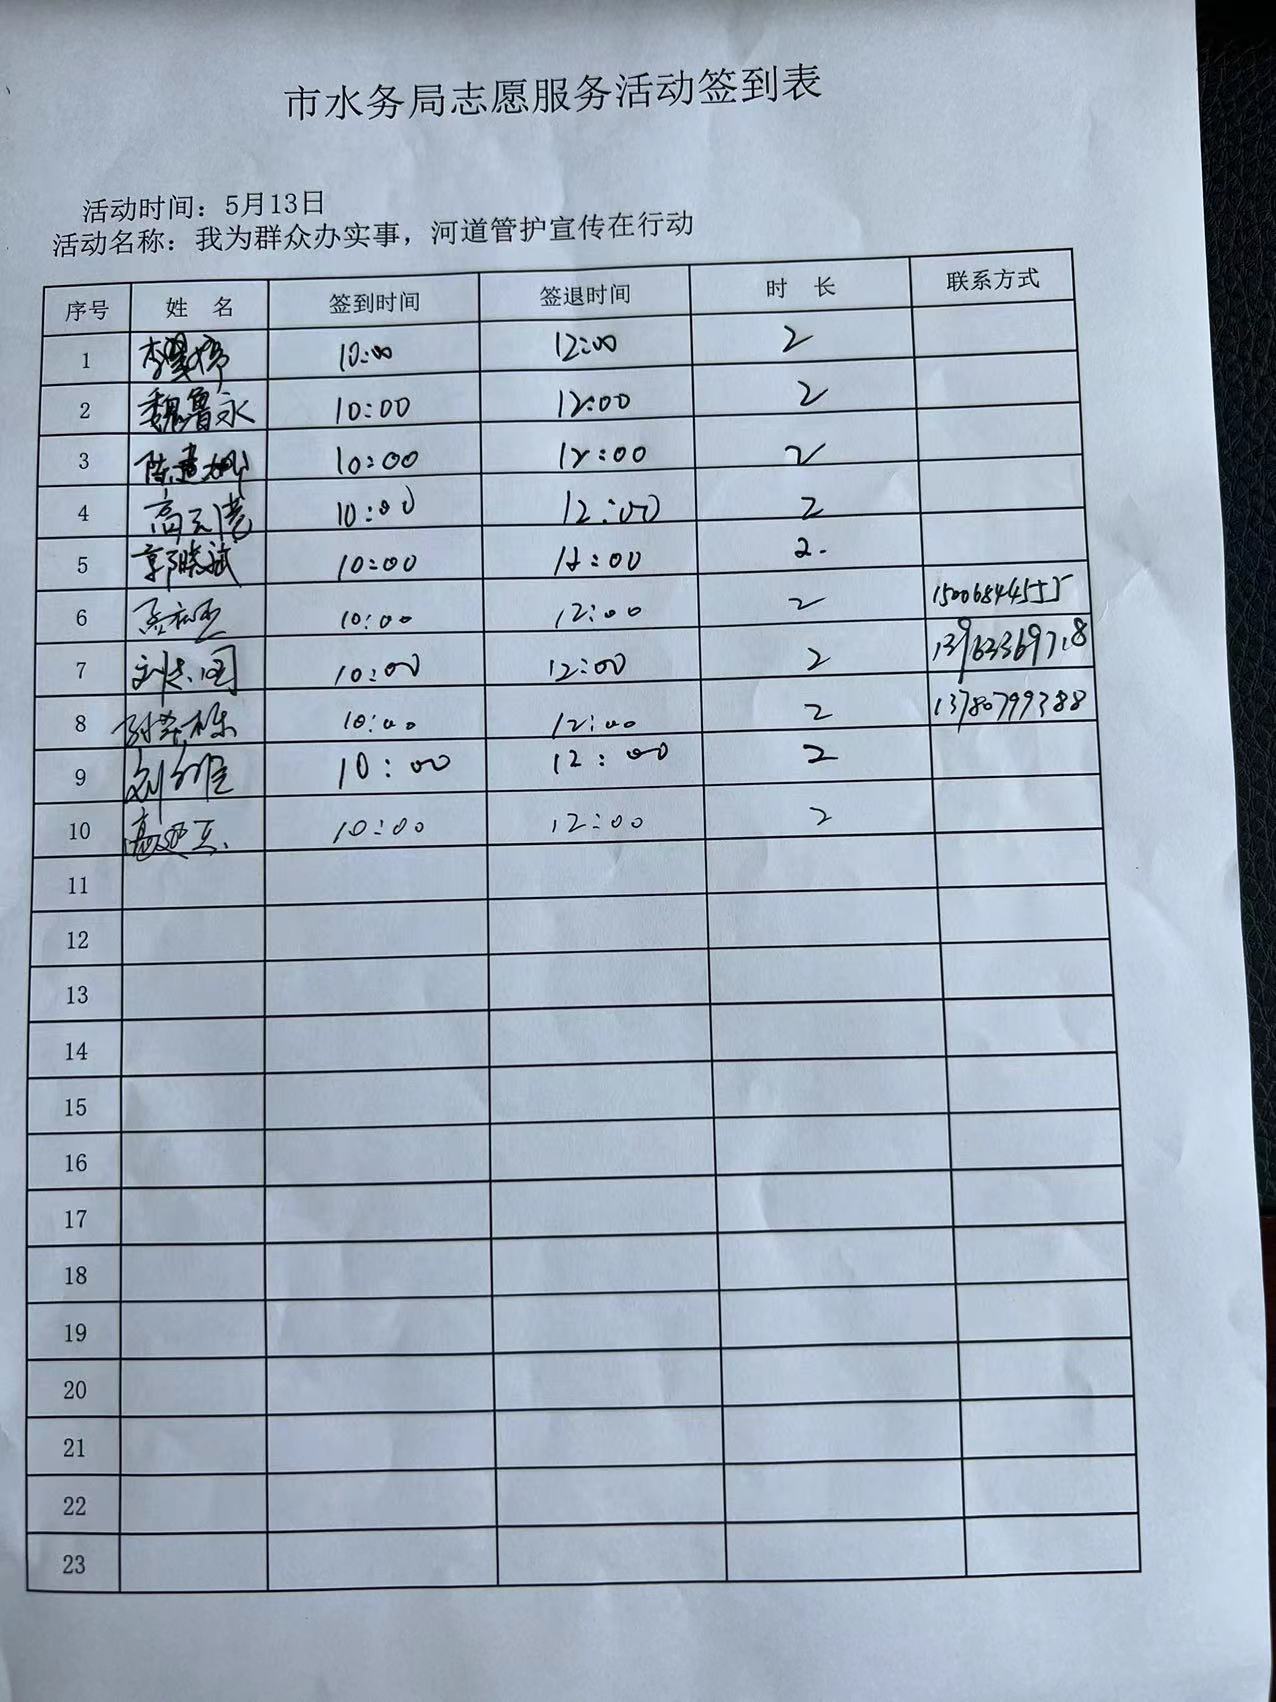 市水务局志愿服务活动签到表
活动时间：5月13日
活动名称：我为群众办实事，河道管护宣传在行动
序号 姓 名 签到时间 签退时间 时 长 联系方式
1 10:00 12:00 2
2 魏鲁永 10:00 12:00 2
3 10:00 12:00 2
4 10:00 12:00 2
5 郭晓斌 10:00 12:00 2.
6 10:00 12:00 2
7 10:00 12:00 2
8 10:00 12:00 2 13780799388
9 10:00 12:00 2
10 10:00 12:00 2
11
12
13
14
15
16
17
18
19
20
21
22
23